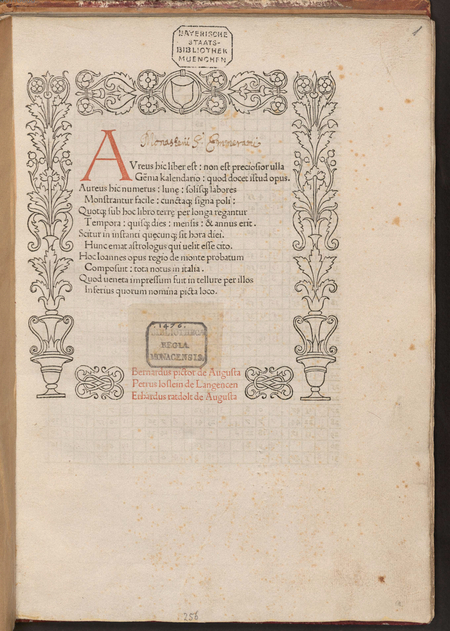 1
BAYERISCHE
STAATS-
BIBLIOTHEK
MUENCHEN
Monasterii S. Emmerami
AVreus hic liber est : non est preciosior ulla
Gēma kalendario : quod docet istud opus.
Aureus hic numerus : lune : solisq; labores
Monstrantur facile : cunctaq; signa poli :
Quotq; sub hoc libro terre per longa regantur
Tempora : quisq; dies : mensis : & annus erit.
Scitur in instanti quecunq; sit hora diei.
Hunc emat astrologus qui uelit esse cito.
Hoc Ioannes opus regio de monte probatum
Composuit : tota notus in italia.
Quod ueneta impressum fuit in tellure per illos
Inferius quorum nomina picta loco.
1476.
BIBLIOTHECA
REGIA
MONACENSIS.
Bernardus pictor de Augusta
Petrus loslein de Langencen
Erhardus ratdolt de Augusta
256